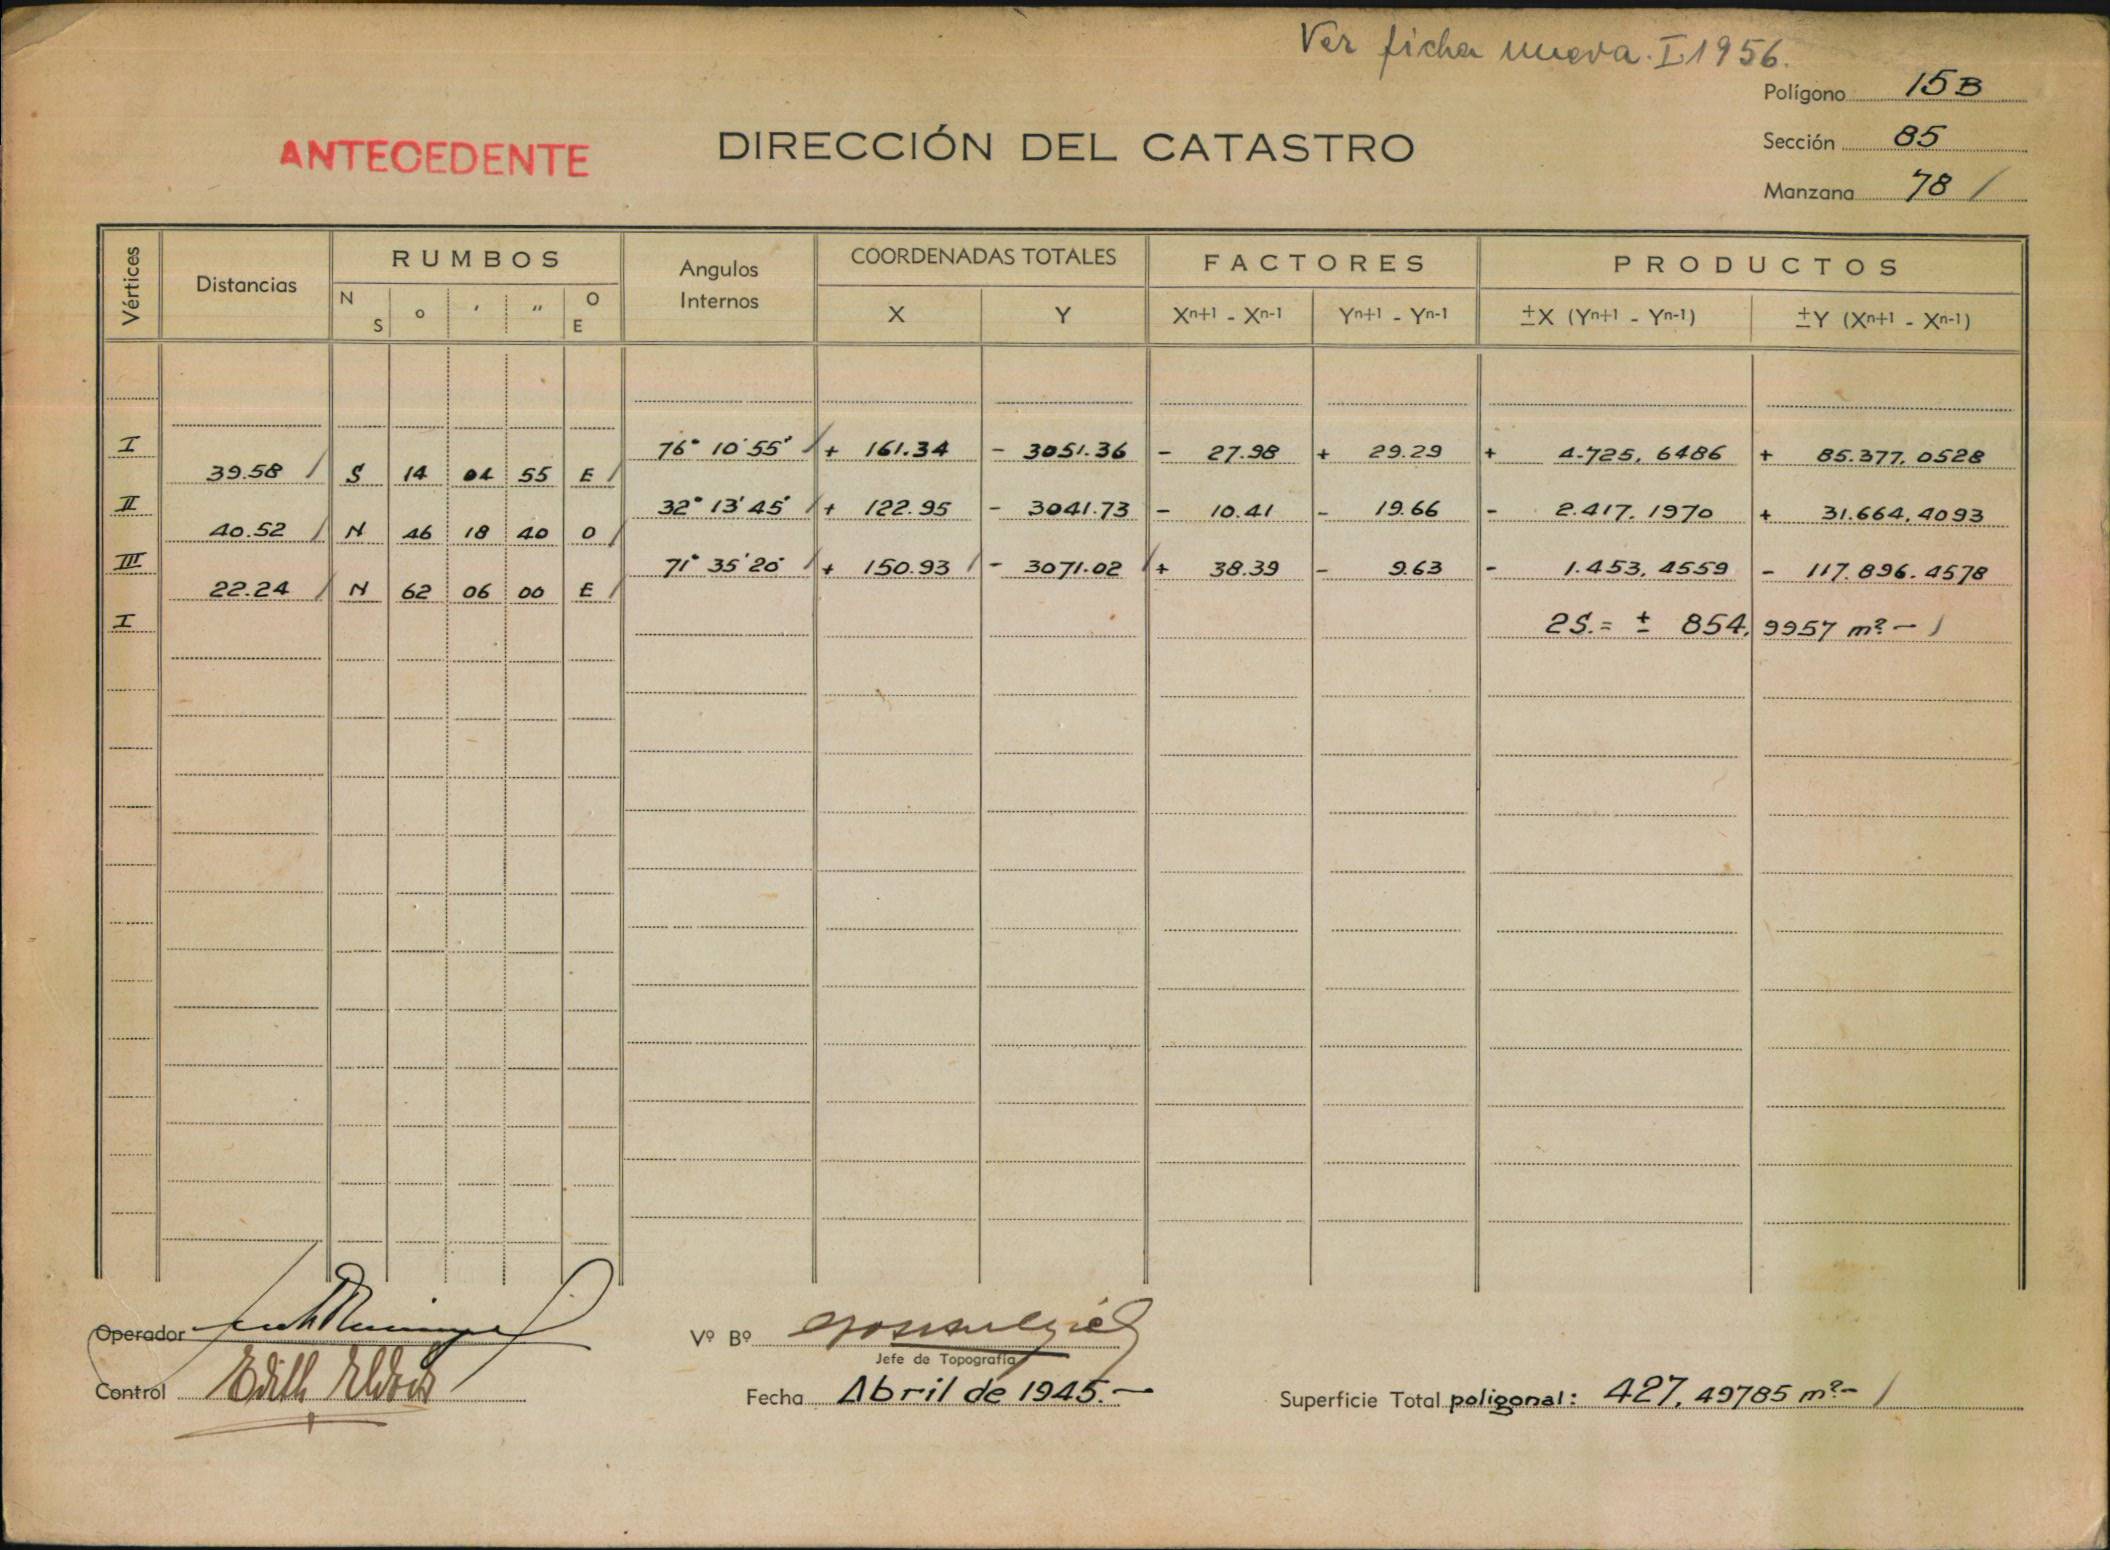 Ver ficha nueva. I.1956.
Polígono 15B
ANTECEDENTE
DIRECCIÓN DEL CATASTRO
Sección 85
Manzana 78 /
Vértices
Distancias
RUMBOS
N S ° ' " O E
Angulos Internos
COORDENADAS TOTALES
X Y
FACTORES
Xn+1 - Xn-1 Yn+1 - Yn-1
PRODUCTOS
±X (Yn+1 - Yn-1) ±Y (Xn+1 - Xn-1)
I 76° 10' 55" / + 161.34 - 3051.36 - 27.98 + 29.29 + 4.725,6486 + 85.377,0528
39.58 / S 14 04 55 E /
II 32° 13' 45" / + 122.95 - 3041.73 - 10.41 - 19.66 - 2.417,1970 + 31.664,4093
40.52 / N 46 18 40 O /
III 71° 35' 20" / + 150.93 / - 3071.02 / + 38.39 - 9.63 - 1.453,4559 - 117.896.4578
22.24 / N 62 06 00 E /
I 2S.= ± 854,9957 m².- /
Operador
Vº Bº
Jefe de Topografía
Control Edith
Fecha Abril de 1945.-
Superficie Total poligonal: 427,49785 m².- /